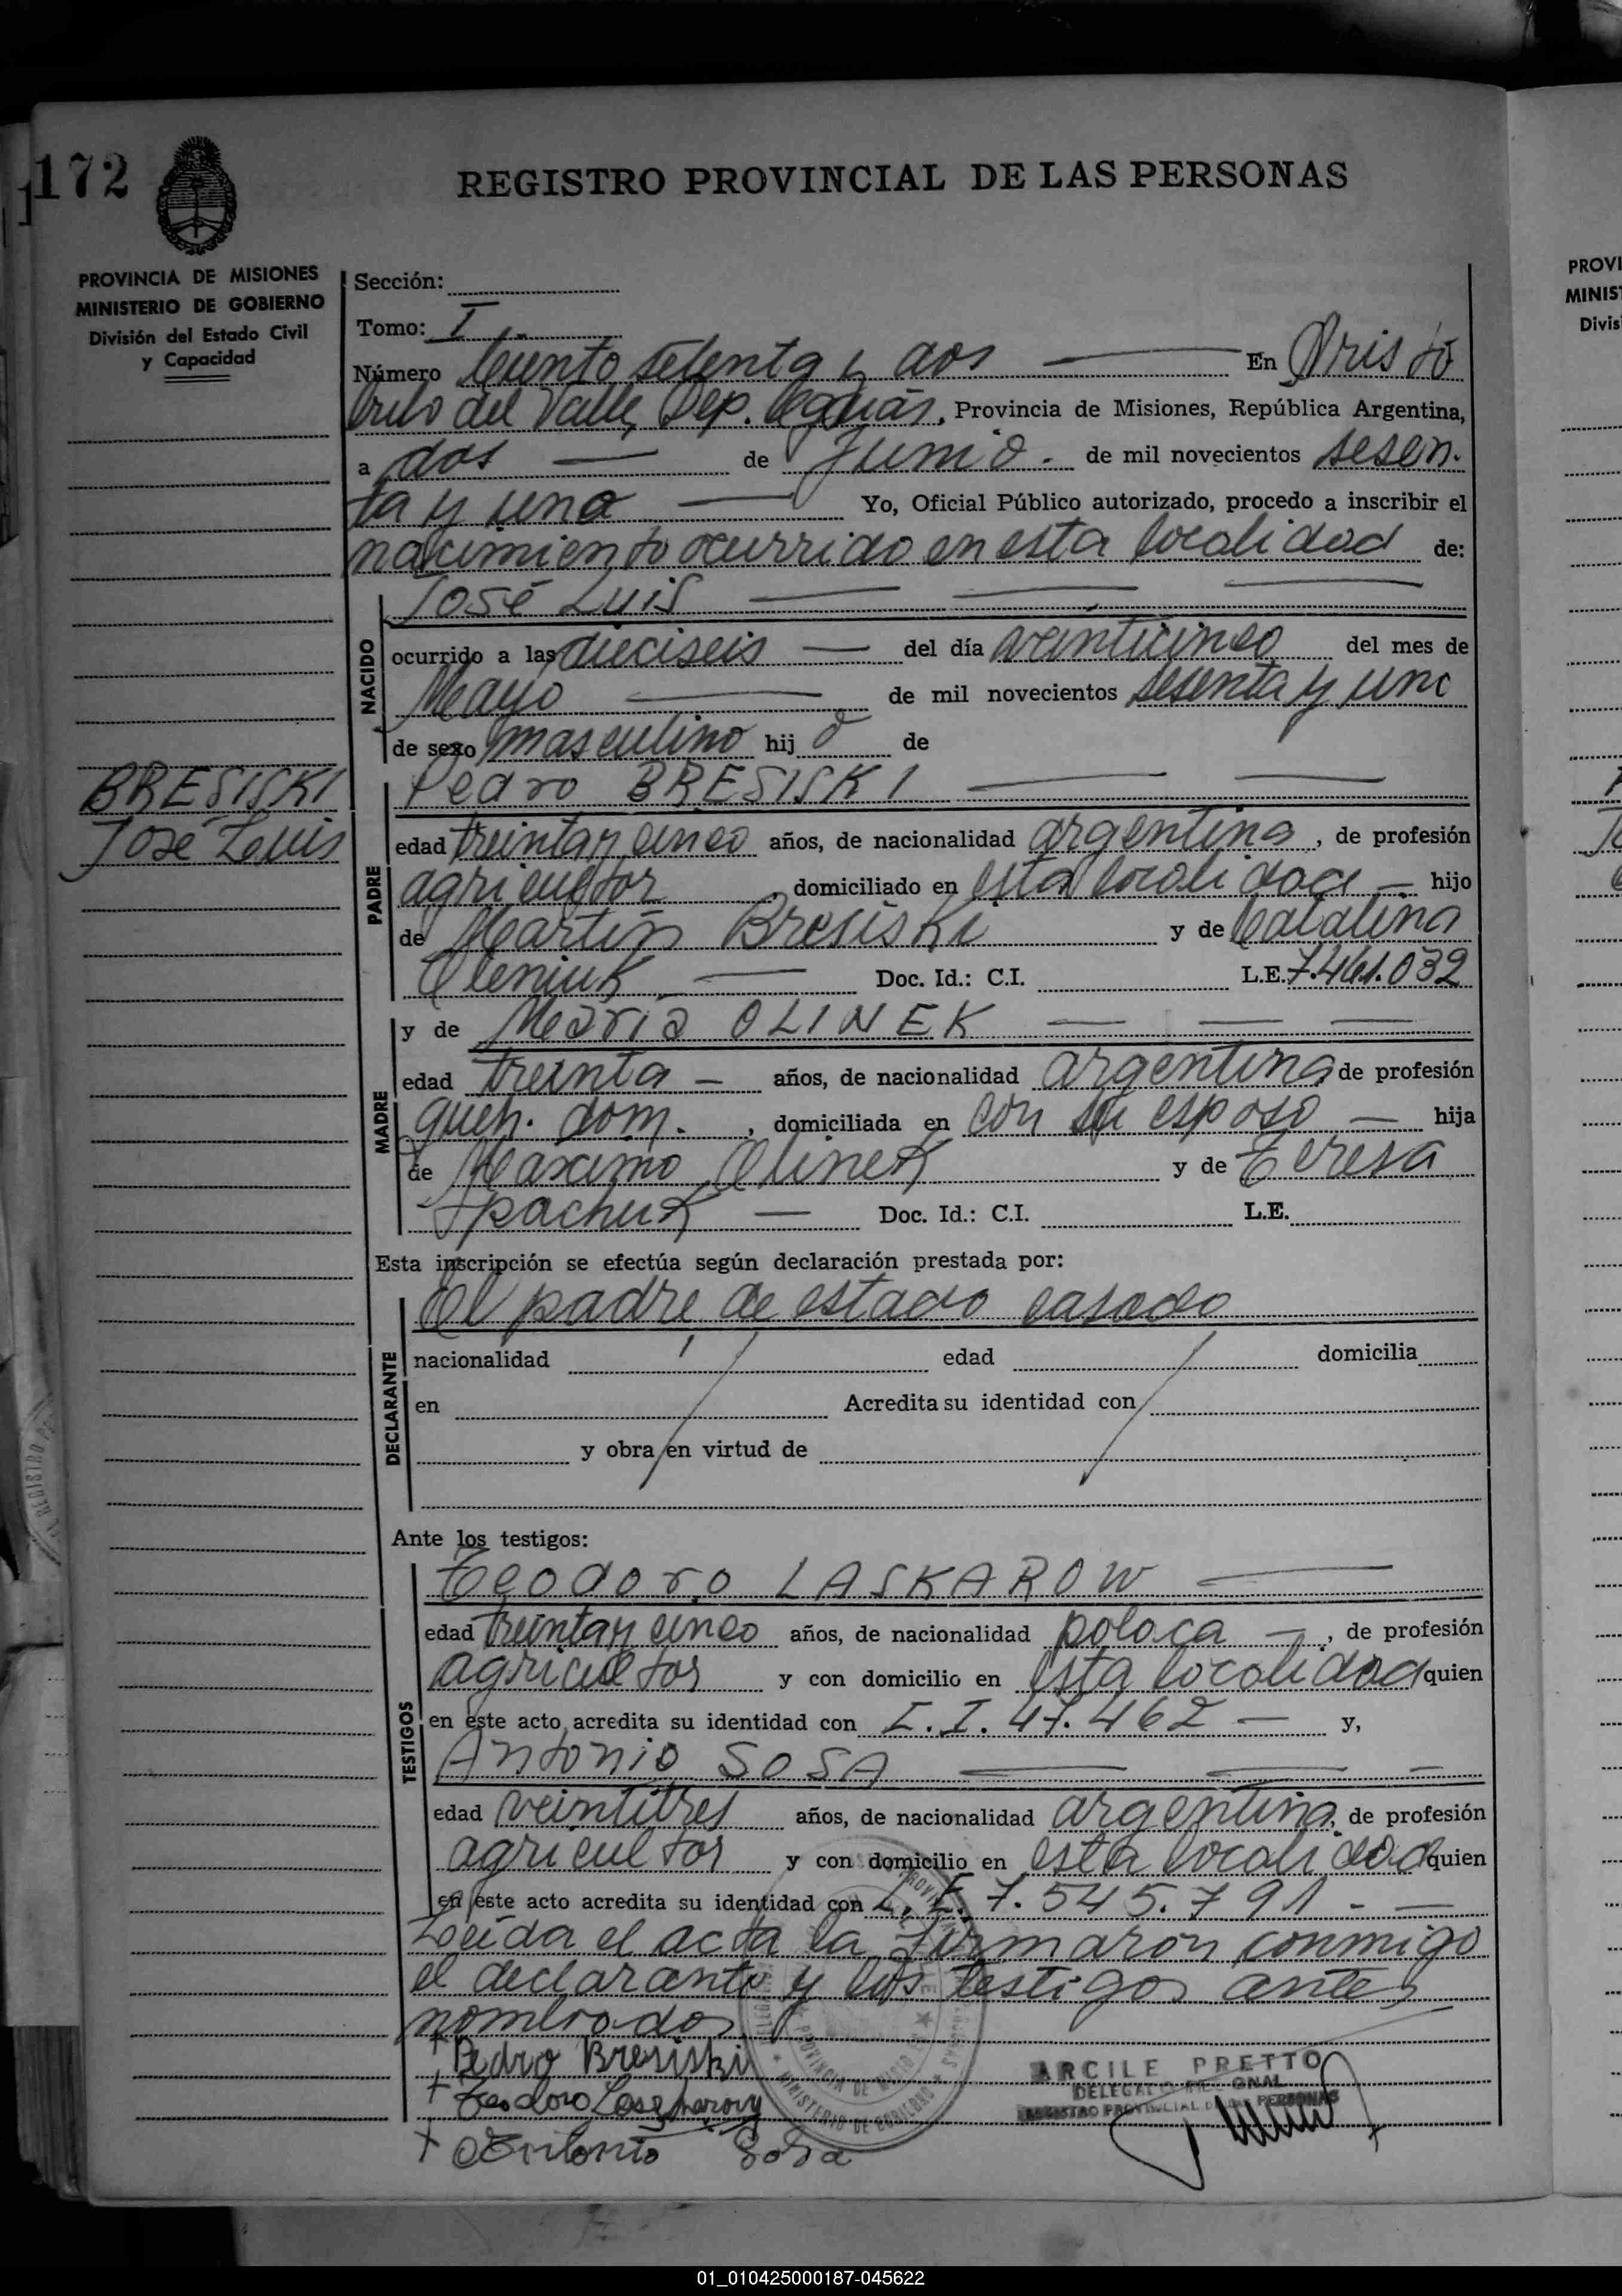 172
REGISTRO PROVINCIAL DE LAS PERSONAS
PROVINCIA DE MISIONES
MINISTERIO DE GOBIERNO
División del Estado Civil
y Capacidad
BRESISKI
José Luis
Sección:
Tomo: I
Número Ciento setenta y dos En Cristó
bulo del Valle, Dep. , Provincia de Misiones, República Argentina,
a dos de Junio. de mil novecientos sesen-
ta y uno Yo, Oficial Público autorizado, procedo a inscribir el
nacimiento ocurrido en esta localidad de:
NACIDO
José Luis
ocurrido a las dieciseis del día veinticinco del mes de
Mayo de mil novecientos sesenta y uno
de sexo masculino hij o de
PADRE
Pedro BRESISKI
edad treinta y cinco años, de nacionalidad argentina, de profesión
agricultor, domiciliado en esta localidad hijo
de Martín Bresiski y de Catalina
Oleniuk Doc. Id.: C.I. L.E. 7.461.032
MADRE
y de María OLINEK
edad treinta años, de nacionalidad argentina, de profesión
queh. dom., domiciliada en con su esposo hija
de Maximo Olinek y de Teresa
Doc. Id.: C.I. L.E.
Esta inscripción se efectúa según declaración prestada por:
DECLARANTE
El padre de estado casado
nacionalidad edad domicilia
en Acredita su identidad con
y obra en virtud de
Ante los testigos:
TESTIGOS
Teodoro LASKAROW
edad treinta y cinco años, de nacionalidad polaca, de profesión
agricultor y con domicilio en esta localidad quien
en este acto acredita su identidad con 47.462 y,
Antonio SOSA
edad veintitres años, de nacionalidad argentina, de profesión
agricultor y con domicilio en esta localidad quien
en este acto acredita su identidad con L.E. 7.545.791
Leída el acta la firmaron conmigo
el declarante y los testigos antes
nombrados
Pedro Bresiski
Teodoro
Antonio Sosa
ARCILE PRETTO
REGISTRO PROVINCIAL DE LAS PERSONAS
PROVI
MINIS
Divis
01_010425000187-045622